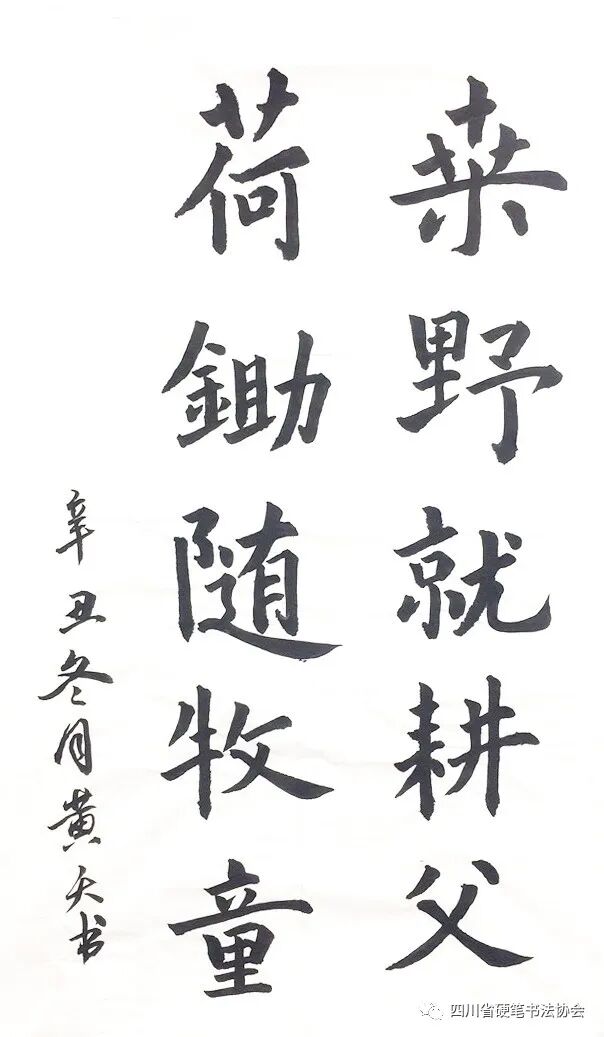 桒野就耕父
荷鋤随牧童
辛丑冬月黄天书
四川省硬笔书法协会